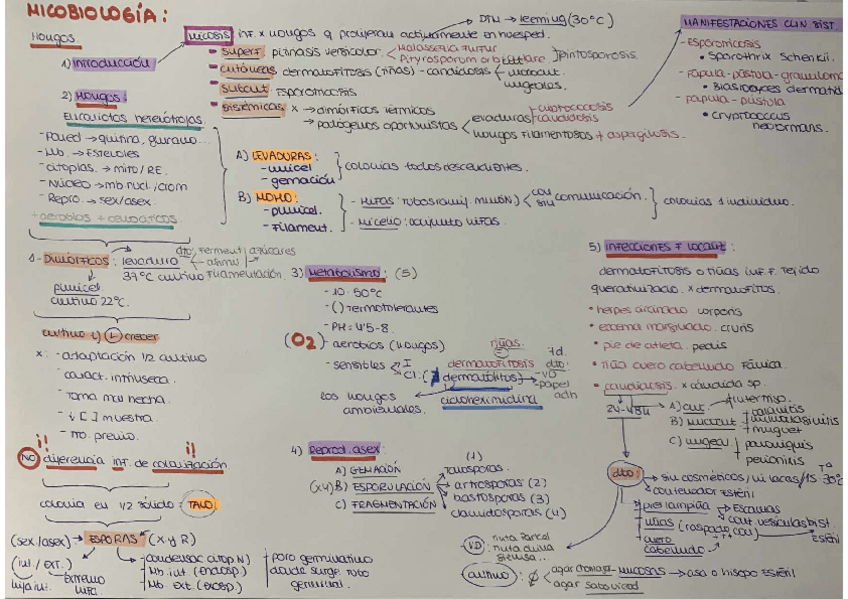 MICOBIOLOGÍA:
Hongos.
1) Introducción
2) Hongos:
Eucariotas heterótrofas.
- Pared → quitina, glucano...
- Mb. → Esteroles
- citoplas. → mito/RE.
- Núcleo → mb nucl./crom
- Repro. → sex/asex.
+ aerobios + celulíticos
DTM → leeming (30°C)
MICOSIS inf. x hongos q proliferan activamente en huesped.
Superf pitiriasis versicolor
Malassezia furfur
Pityrosporum orbiculare
cutáneas dermatofitosis (tiñas) - candidiosis
mucocut
ungeales.
subcut esporomicosis
sistémicas x → dimórficos térmicos
→ patógenos oportunistas
levaduras
criptococosis
candidiosis
hongos filamentosos + aspergilosis.
MANIFESTACIONES CLIN DIST.
- Esporomicosis
• Sporothrix Schenkii.
- Pápula - pústula - granuloma
• Blastomyces dermatid
- papula - pústula
• cryptococcus
neoformans.
A) LEVADURAS:
- unicel
- gemación
colonias todos descendientes.
B) MOHO:
- pluricel.
- Filament.
- Hifas: tubos ramif.
con
sin
comunicación.
- Micelio: conjunto hifas.
colonias 1 individuo.
1- Dimórficos: levadura
37°C cultivo Filamentación.
pluricel
cultivo 22°C.
cultivo
crecer
x: - adaptación 1/2 cultivo
- caract. intrínseca.
- Toma mal hecha.
- ↓ [ ] muestra.
- tto previo.
¡! ¡!
NO diferencia inf. de colonización
colonia en 1/2 sólido: TALO:
(sex/asex) → ESPORAS → (x y R)
(int / ext.)
extremo
hifa.
- condensac citop N)
- Mb. int. (endosp.)
- Mb. ext. (exosp.)
poro germinativo
donde surge tubo
germinal.
3) Metabolismo: (5)
- 10-50°C
- ( ) termotolerantes
- PH = 4'5-8.
(O2) aerobios (hongos)
- sensibles
I
Cl.
tiñas.
=
dermatofitosis
(dermatofitos)
cicloheximidina
los hongos
ambientales.
7d.
dto:
- VD
- papel
adh
4) Reprod. asex:
A) GEMACIÓN
(x4) B) ESPORULACIÓN
C) FRAGMENTACIÓN
(1)
artrosporas (2)
blastosporas (3)
clamidosporas (4)
5) infecciones + localiz:
dermatofitosis o tiñas inf. F. tejido
queratinizado. x dermatofitos.
• herpes circinado corporis
• eczema marginado. cruris
• pie de atleta. pedis
• tiña cuero cabelludo
• candidiasis. x cándida sp.
24-48h
A) cut → intertrigo.
B) mucocut
balanitis
vulvovaginitis
muguet
C) ungeal
paroniquis
perionixis
dto:
sin cosméticos/ 30°
contenedor estéril
piel lampiña
Escamas
vesículas dist.
uñas (raspado
estéril
cuero
cabelludo
VD:
germinal...
cultivo:
agar cromoja - mucosas → asa o hisopo estéril
agar sabouraud